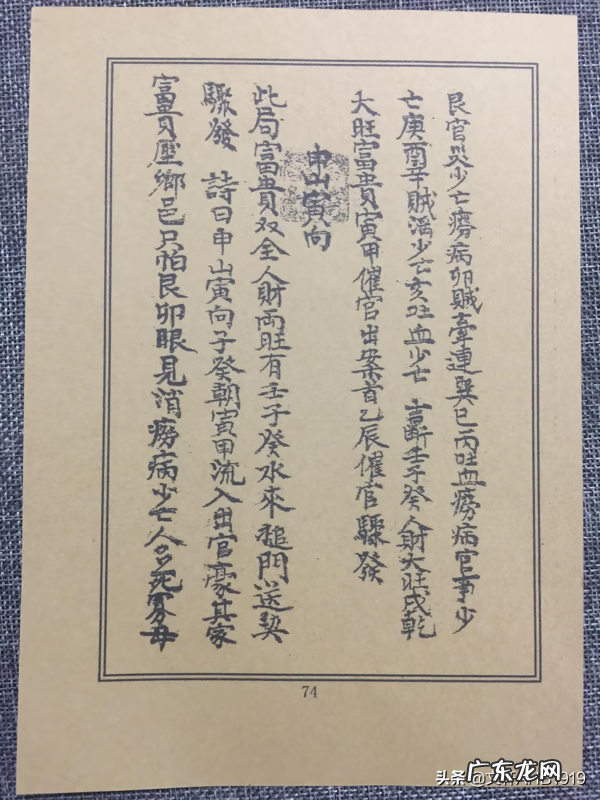 艮官災少亡癆病卯賊牽連巽巳丙吐血癆病官事少
亡庚酉辛賊滛少亡亥吐血少亡 吉断壬子癸人財大旺戌乾
大旺富貴寅甲催官出案首乙辰催官驟發
申山寅向
此局富貴双全人財両旺有壬子癸水來 門送契
驟發 詩曰申山寅向子癸朝寅甲流入出官豪其家
富貴壓鄉邑只怕艮卯眼見消癆病少亡人多死寡母
74
头条
广东龙网